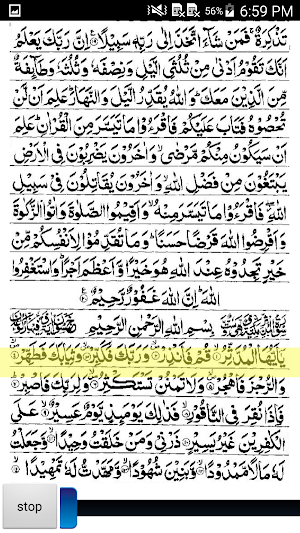 56% 6:59 PM
تَذْكِرَةٌ فَمَنْ شَآءَ اتَّخَذَ اِلٰى رَبِّهٖ سَبِيْلًا ۝ اِنَّ رَبَّكَ يَعْلَمُ
اَنَّكَ تَقُوْمُ اَدْنٰى مِنْ ثُلُثَىِ الَّيْلِ وَنِصْفَهٗ وَثُلُثَهٗ وَطَآئِفَةٌ
مِّنَ الَّذِيْنَ مَعَكَ ؕ وَاللّٰهُ يُقَدِّرُ الَّيْلَ وَالنَّهَارَ ؕ عَلِمَ اَنْ لَّنْ
تُحْصُوْهُ فَتَابَ عَلَيْكُمْ فَاقْرَءُوْا مَا تَيَسَّرَ مِنَ الْقُرْاٰنِ ؕ عَلِمَ
اَنْ سَيَكُوْنُ مِنْكُمْ مَّرْضٰى ۙ وَاٰخَرُوْنَ يَضْرِبُوْنَ فِى الْاَرْضِ
يَبْتَغُوْنَ مِنْ فَضْلِ اللّٰهِ ۙ وَاٰخَرُوْنَ يُقَاتِلُوْنَ فِىْ سَبِيْلِ
اللّٰهِ ۖ فَاقْرَءُوْا مَا تَيَسَّرَ مِنْهُ ۙ وَاَقِيْمُوا الصَّلٰوةَ وَاٰتُوا الزَّكٰوةَ
وَاَقْرِضُوا اللّٰهَ قَرْضًا حَسَنًا ؕ وَمَا تُقَدِّمُوْا لِاَنْفُسِكُمْ مِّنْ
خَيْرٍ تَجِدُوْهُ عِنْدَ اللّٰهِ هُوَ خَيْرًا وَّاَعْظَمَ اَجْرًا ؕ وَاسْتَغْفِرُوا
اللّٰهَ ؕ اِنَّ اللّٰهَ غَفُوْرٌ رَّحِيْمٌ ۝
بِسْمِ اللّٰهِ الرَّحْمٰنِ الرَّحِيْمِ
يٰۤاَيُّهَا الْمُدَّثِّرُ ۝ قُمْ فَاَنْذِرْ ۝ وَرَبَّكَ فَكَبِّرْ ۝ وَثِيَابَكَ فَطَهِّرْ ۝
وَالرُّجْزَ فَاهْجُرْ ۝ وَلَا تَمْنُنْ تَسْتَكْثِرُ ۝ وَلِرَبِّكَ فَاصْبِرْ ۝
فَاِذَا نُقِرَ فِى النَّاقُوْرِ ۝ فَذٰلِكَ يَوْمَئِذٍ يَّوْمٌ عَسِيْرٌ ۝ عَلَى
الْكٰفِرِيْنَ غَيْرُ يَسِيْرٍ ۝ ذَرْنِىْ وَمَنْ خَلَقْتُ وَحِيْدًا ۝ وَّجَعَلْتُ
لَهٗ مَالًا مَّمْدُوْدًا ۝ وَّبَنِيْنَ شُهُوْدًا ۝ وَّمَهَّدْتُّ لَهٗ تَمْهِيْدًا ۝
stop